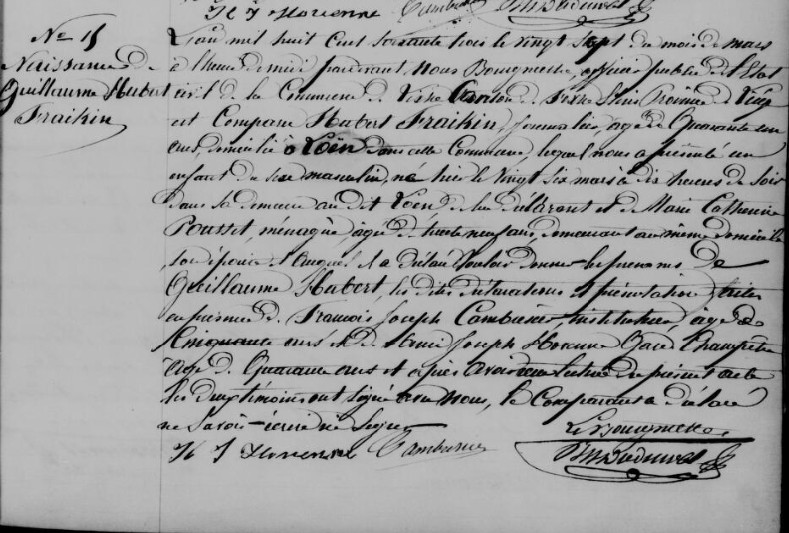 H J Horenne Cambresier
N° 15
Naissance de
Guillaume Hubert
Fraikin
L'an mil huit cent soixante trois le vingt sept du mois de mars
à l'heure de midi pardevant Nous officier public de l'Etat
civil de la Commune de Canton de Province de Liège
est Comparu Hubert Fraikin, journalier, âgé de Quarante un
ans, domicilié à Loën dans cette Commune, lequel nous a présenté un
enfant du sexe masculin, né hier le vingt six mars à dix heures du soir
dans sa demeure au dit Loën de lui déclarant et de Marie Catherine
Pousset, ménagère, âgée de trente neuf ans, demeurant au même domicile
son épouse et auquel il a déclaré vouloir donner les prénoms de
Guillaume Hubert, les dites déclarations et présentation faites
en présence de François Joseph Cambresier instituteur, âgé de
Cinquante ans et de Henri Joseph Horenne Garde Champêtre
âgé de Quarante ans et après avoir donné lecture du présent acte
les deux témoins ont signé avec Nous, le Comparant a déclaré
ne savoir écrire ni signer
H J Horenne Cambresier